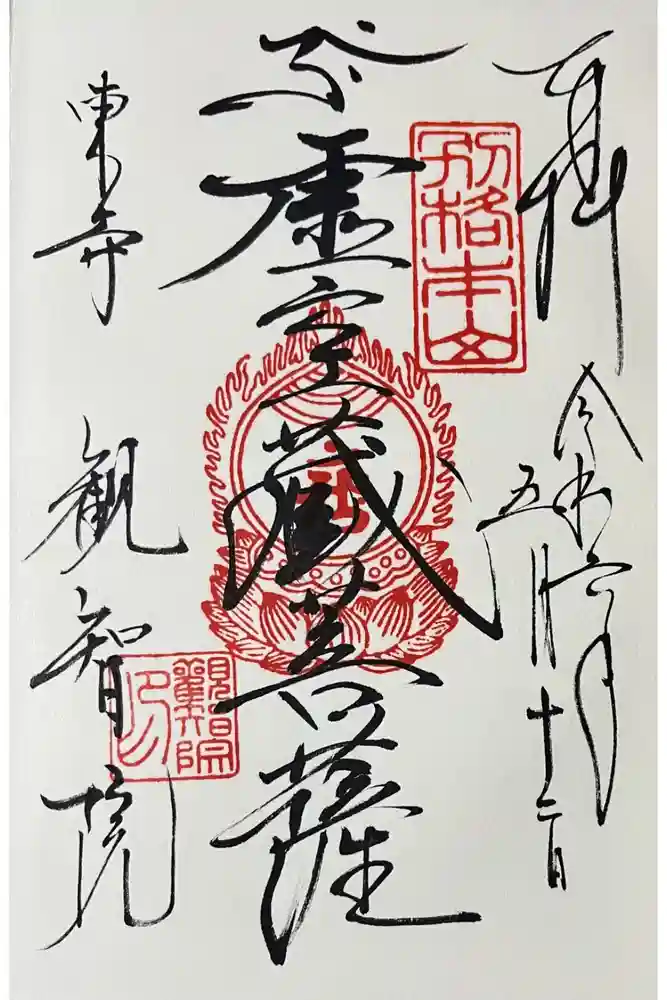 奉拝
令和六年
五月十二日
別格本山
虚空蔵菩薩
東寺
観智院
觀智院印